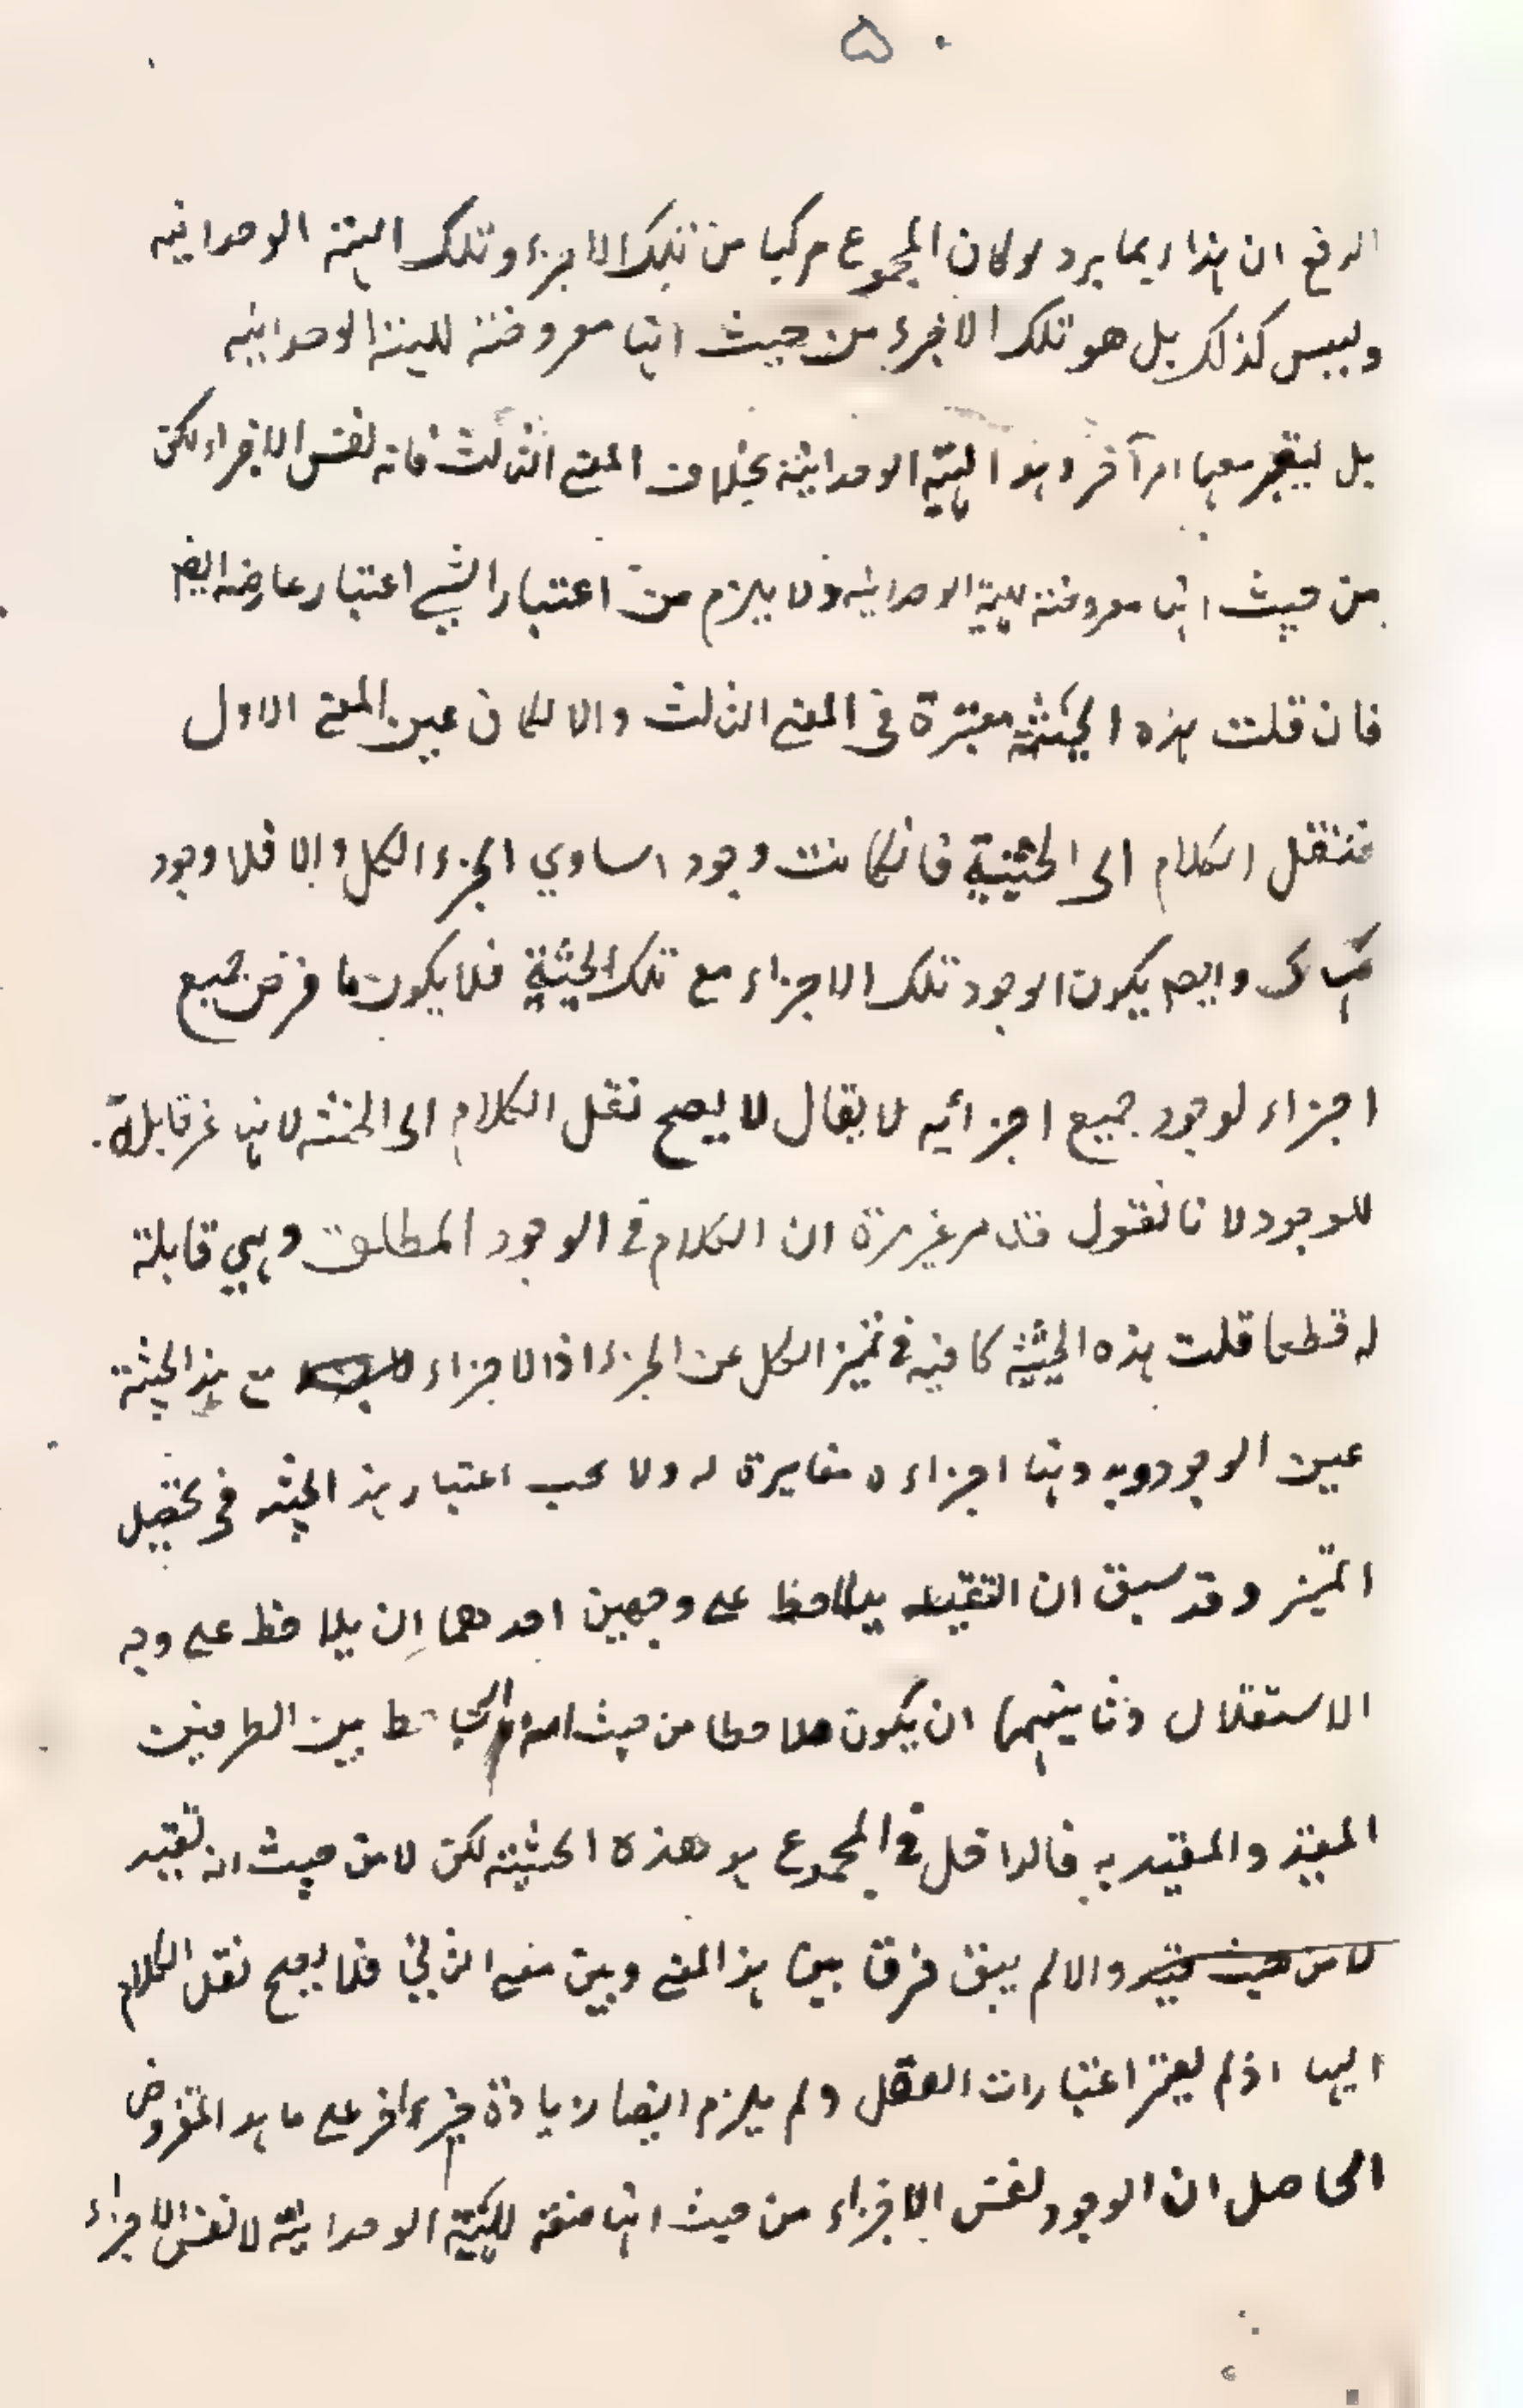 ٥
الدفع ان هذا ايما يرد لو كان المجموع مركبا من تلك الاجزاء وتلك الهيئة الوحدانية
وليس كذلك بل هو تلك الاجزاء من حيث انها معروضة للهيئة الوحدانية
بل يعتبر معها امر آخر وهو الهيئة الوحدانية بخلاف المعنى الثالث فانه نفس الاجزاء لكن
من حيث انها معروضة للهيئة الوحدانية ولا يلزم من اعتبار الشي اعتبار عارضه ايضا
فان قلت هذه الحيثية معتبرة في المعنى الثالث والا لكان عين المعنى الاول
فننقل الكلام الى الحيثية فان كانت وجودا ساوي الجزء الكل والا فلا وجود
وايضا يكون الوجود تلك الاجزاء مع تلك الحيثية فلا يكون ما فرض جميع
اجزاء لوجود جميع اجزائيه لا يقال لا يصح نقل الكلام الى الحيثية لانها غير قابلة
للوجود لانا نقول قد مر غير مرة ان الكلام في الوجود المطلق وهي قابلة
له قطعا قلت هذه الحيثية كافية في تميز الكل عن الجزء اذ الاجزاء مع هذ الحيثية
عين الوجود وبدونها اجزاءه مغايرة له ولا يجب اعتبار هذ الحيثية في تحصيل
التميز وقد سبق ان التقييد يلاحظ على وجهين احدهما ان يلاحظ على وجه
الاستقلال وثانيهما ان يكون ملاحظا من حيث انه بين الطرفين
المقيد والمقيد به فالداخل في المجموع هو هذه الحيثية لكن لا من حيث انه تقييد
لا من حيث والا لم يبق فرق بين هذ المعنى وبين معنى الثاني فلا يصح نقل الكلام
اليها اذ لم يعتبر اعتبارات العقل ولم يلزم ايضا زيادة جزء اخر على ما هو المفروض
الحاصل ان الوجود نفس الاجزاء من حيث انها للهيئة الوحدانية لا نفس الاجزاء